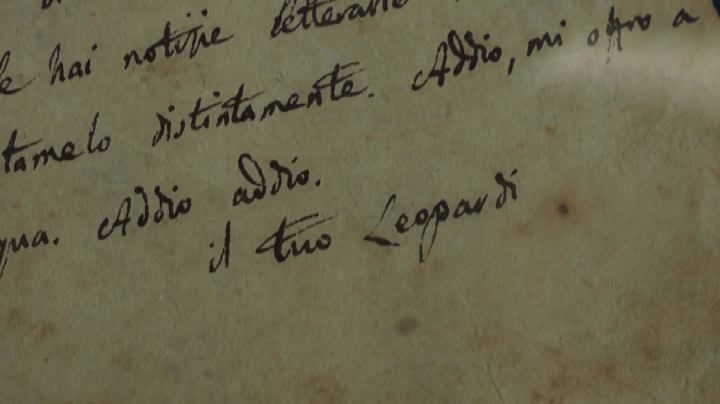 hai notizie letterarie
tamelo distintamente. Addio, mi offro a
qua. Addio addio.
il tuo Leopardi